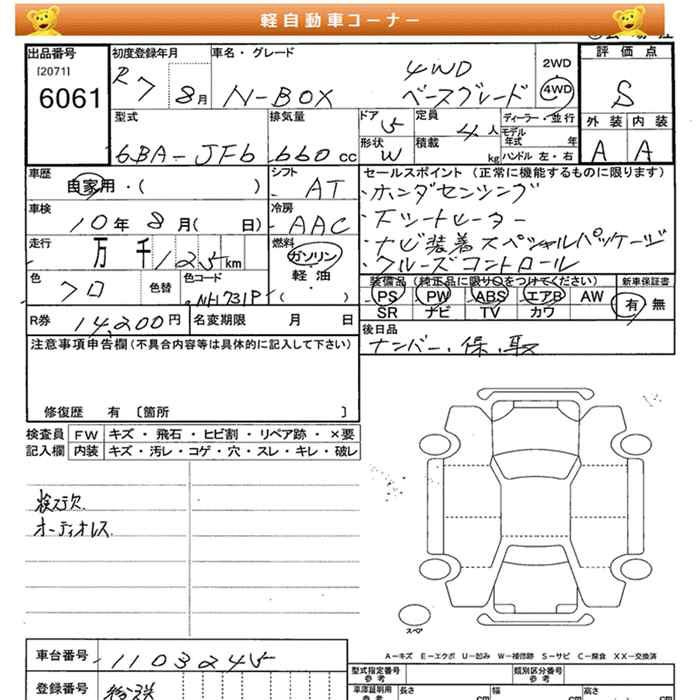 軽自動車コーナー
出品番号 初度登録年月 車名・グレード 評価点
[2071] 6061
R7 8月 N-BOX 4WD ベースグレード 2WD 4WD S
型式 排気量 ドア 定員 ディーラー・並行 外装 内装
6BA-JF6 660cc 5 4人 モデル年式 年 A A
形状 W 積載 kg ハンドル 左・右
車歴 シフト セールスポイント (正常に機能するものに限ります)
自家用・( ) AT ・ホンダセンシング
車検 冷房 ・シートヒーター
10年8月( 日) AAC ・ナビ装着スペシャルパッケージ
走行 燃料 ・クルーズコントロール
万 千 125km ガソリン 軽・油 ・( )
色 色替 色コード 装備品 (純正品に限り○をつけてください) 新車保証書
クロ NH731P PS PW ABS エアB AW 有 無
SR ナビ TV カワ
R券 14,200円 名変期限 月 日 後日品
ナンバー、保、取
注意事項申告欄(不具合内容等は具体的に記入して下さい)
修復歴 有 [箇所 ]
検査員 FW キズ・飛石・ヒビ割・リペア跡・×要
記入欄 内装 キズ・汚レ・コゲ・穴・スレ・キレ・破レ
オーディオレス
スペア
A-キズ E-エクボ U-凹み W-補修跡 S-サビ C-腐食 XX-交換済
車台番号 1103245
型式指定番号 参考 類別区分番号 参考
登録番号
車庫証明用 参考 長さ cm 幅 cm 高さ